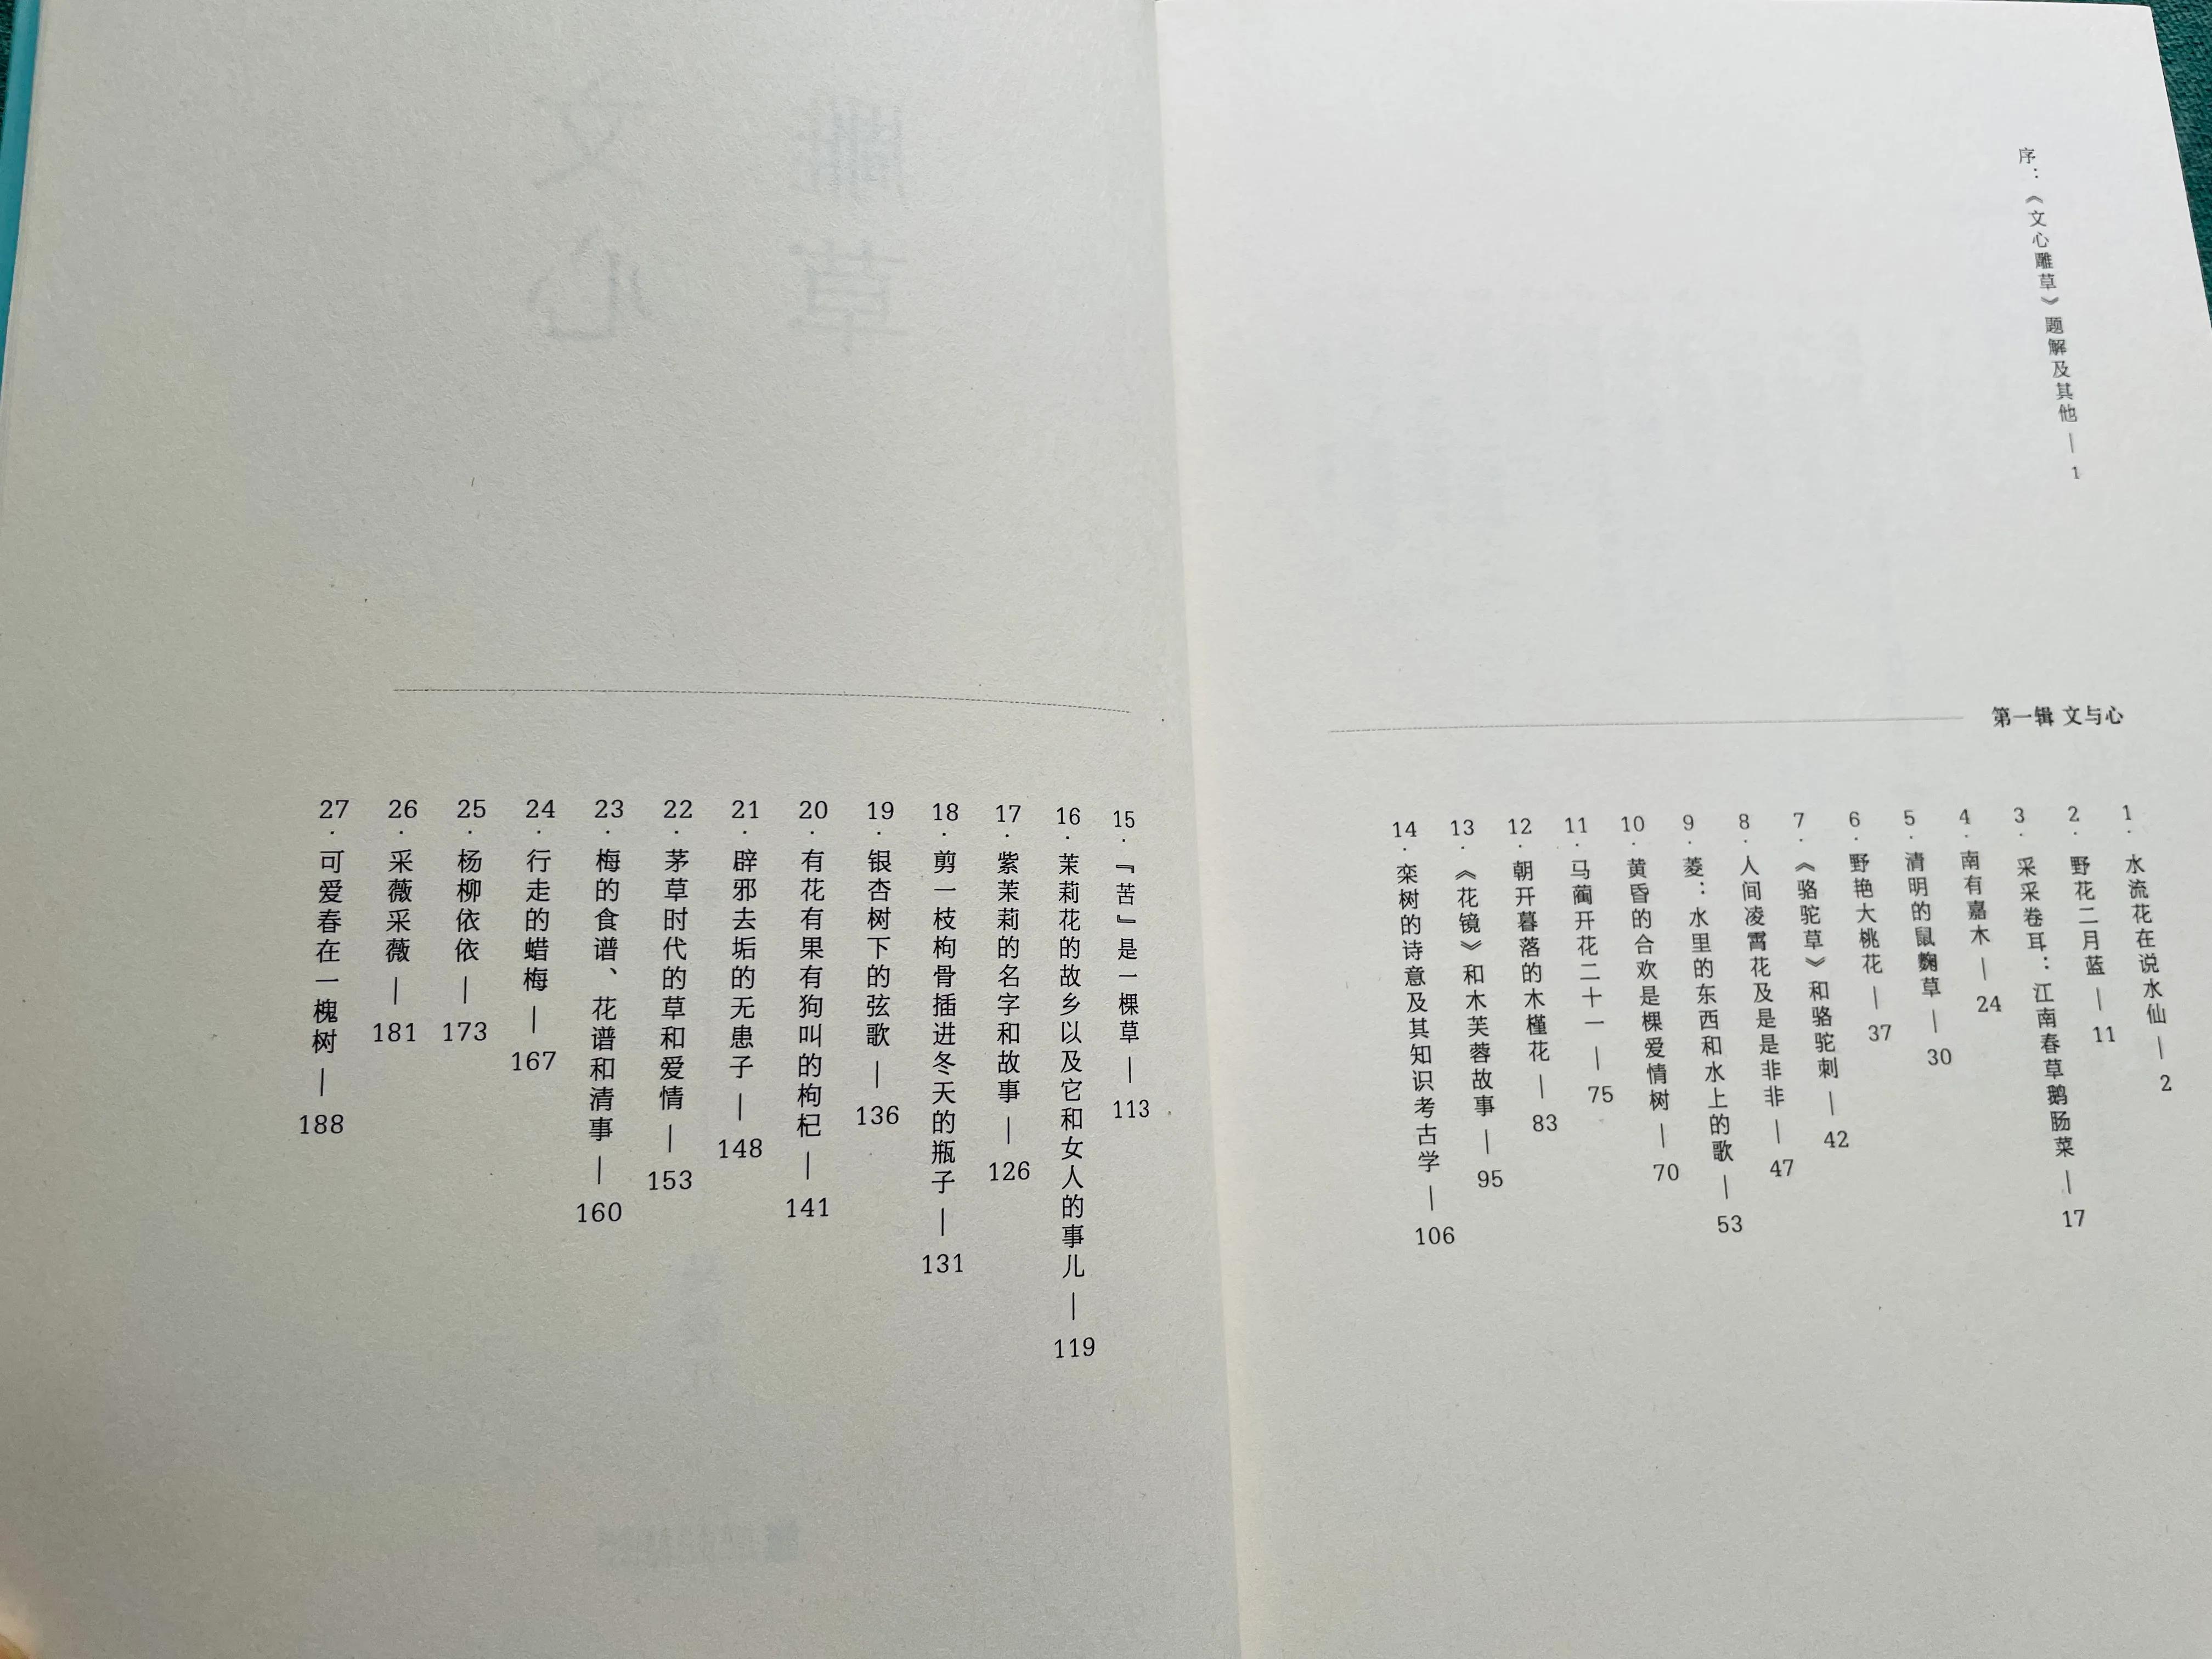 序：《文心雕草》题解及其他 — 1
第一辑 文与心
1 · 水流花在说水仙 — 2
2 · 野花二月蓝 — 11
3 · 采采卷耳：江南春草鹅肠菜 — 17
4 · 南有嘉木 — 24
5 · 清明的鼠麴草 — 30
6 · 野艳大桃花 — 37
7 · 《骆驼草》和骆驼刺 — 42
8 · 人间凌霄花及是是非非 — 47
9 · 菱：水里的东西和水上的歌 — 53
10 · 黄昏的合欢是棵爱情树 — 70
11 · 马蔺开花二十一 — 75
12 · 朝开暮落的木槿花 — 83
13 · 《花镜》和木芙蓉故事 — 95
14 · 栾树的诗意及其知识考古学 — 106
15 · 『苦』是一棵草 — 113
16 · 茉莉花的故乡以及它和女人的事儿 — 119
17 · 紫茉莉的名字和故事 — 126
18 · 剪一枝枸骨插进冬天的瓶子 — 131
19 · 银杏树下的弦歌 — 136
20 · 有花有果有狗叫的枸杞 — 141
21 · 辟邪去垢的无患子 — 148
22 · 茅草时代的草和爱情 — 153
23 · 梅的食谱、花谱和清事 — 160
24 · 行走的蜡梅 — 167
25 · 杨柳依依 — 173
26 · 采薇采薇 — 181
27 · 可爱春在一槐树 — 188
文心
雕草